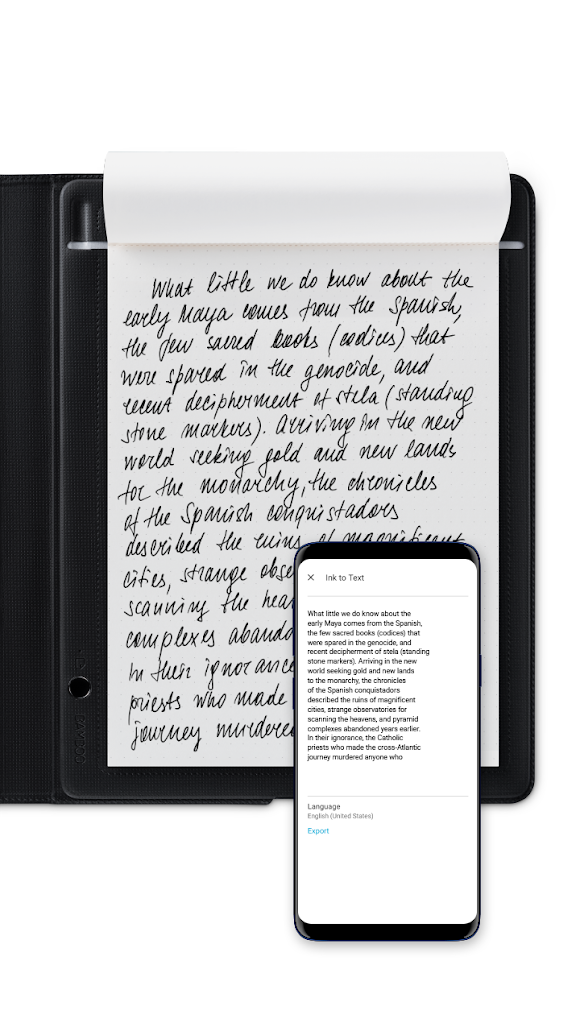 What little we do know about the
early Maya comes from the Spanish,
the few sacred books (codices) that
were spared in the genocide, and
recent decipherment of stela (standing
stone markers). Arriving in the new
world seeking gold and new lands
for the monarchy, the chronicles
of the Spanish conquistadors
described the ruins of magnificent
cities, strange obse
scanning the hea
complexes abando
In their ignorance
priests who made
journey murdered
Ink to Text
What little we do know about the
early Maya comes from the Spanish,
the few sacred books (codices) that
were spared in the genocide, and
recent decipherment of stela (standing
stone markers). Arriving in the new
world seeking gold and new lands
to the monarchy, the chronicles
of the Spanish conquistadors
described the ruins of magnificent
cities, strange observatories for
scanning the heavens, and pyramid
complexes abandoned years earlier.
In their ignorance, the Catholic
priests who made the cross-Atlantic
journey murdered anyone who
Language
English (United States)
Export